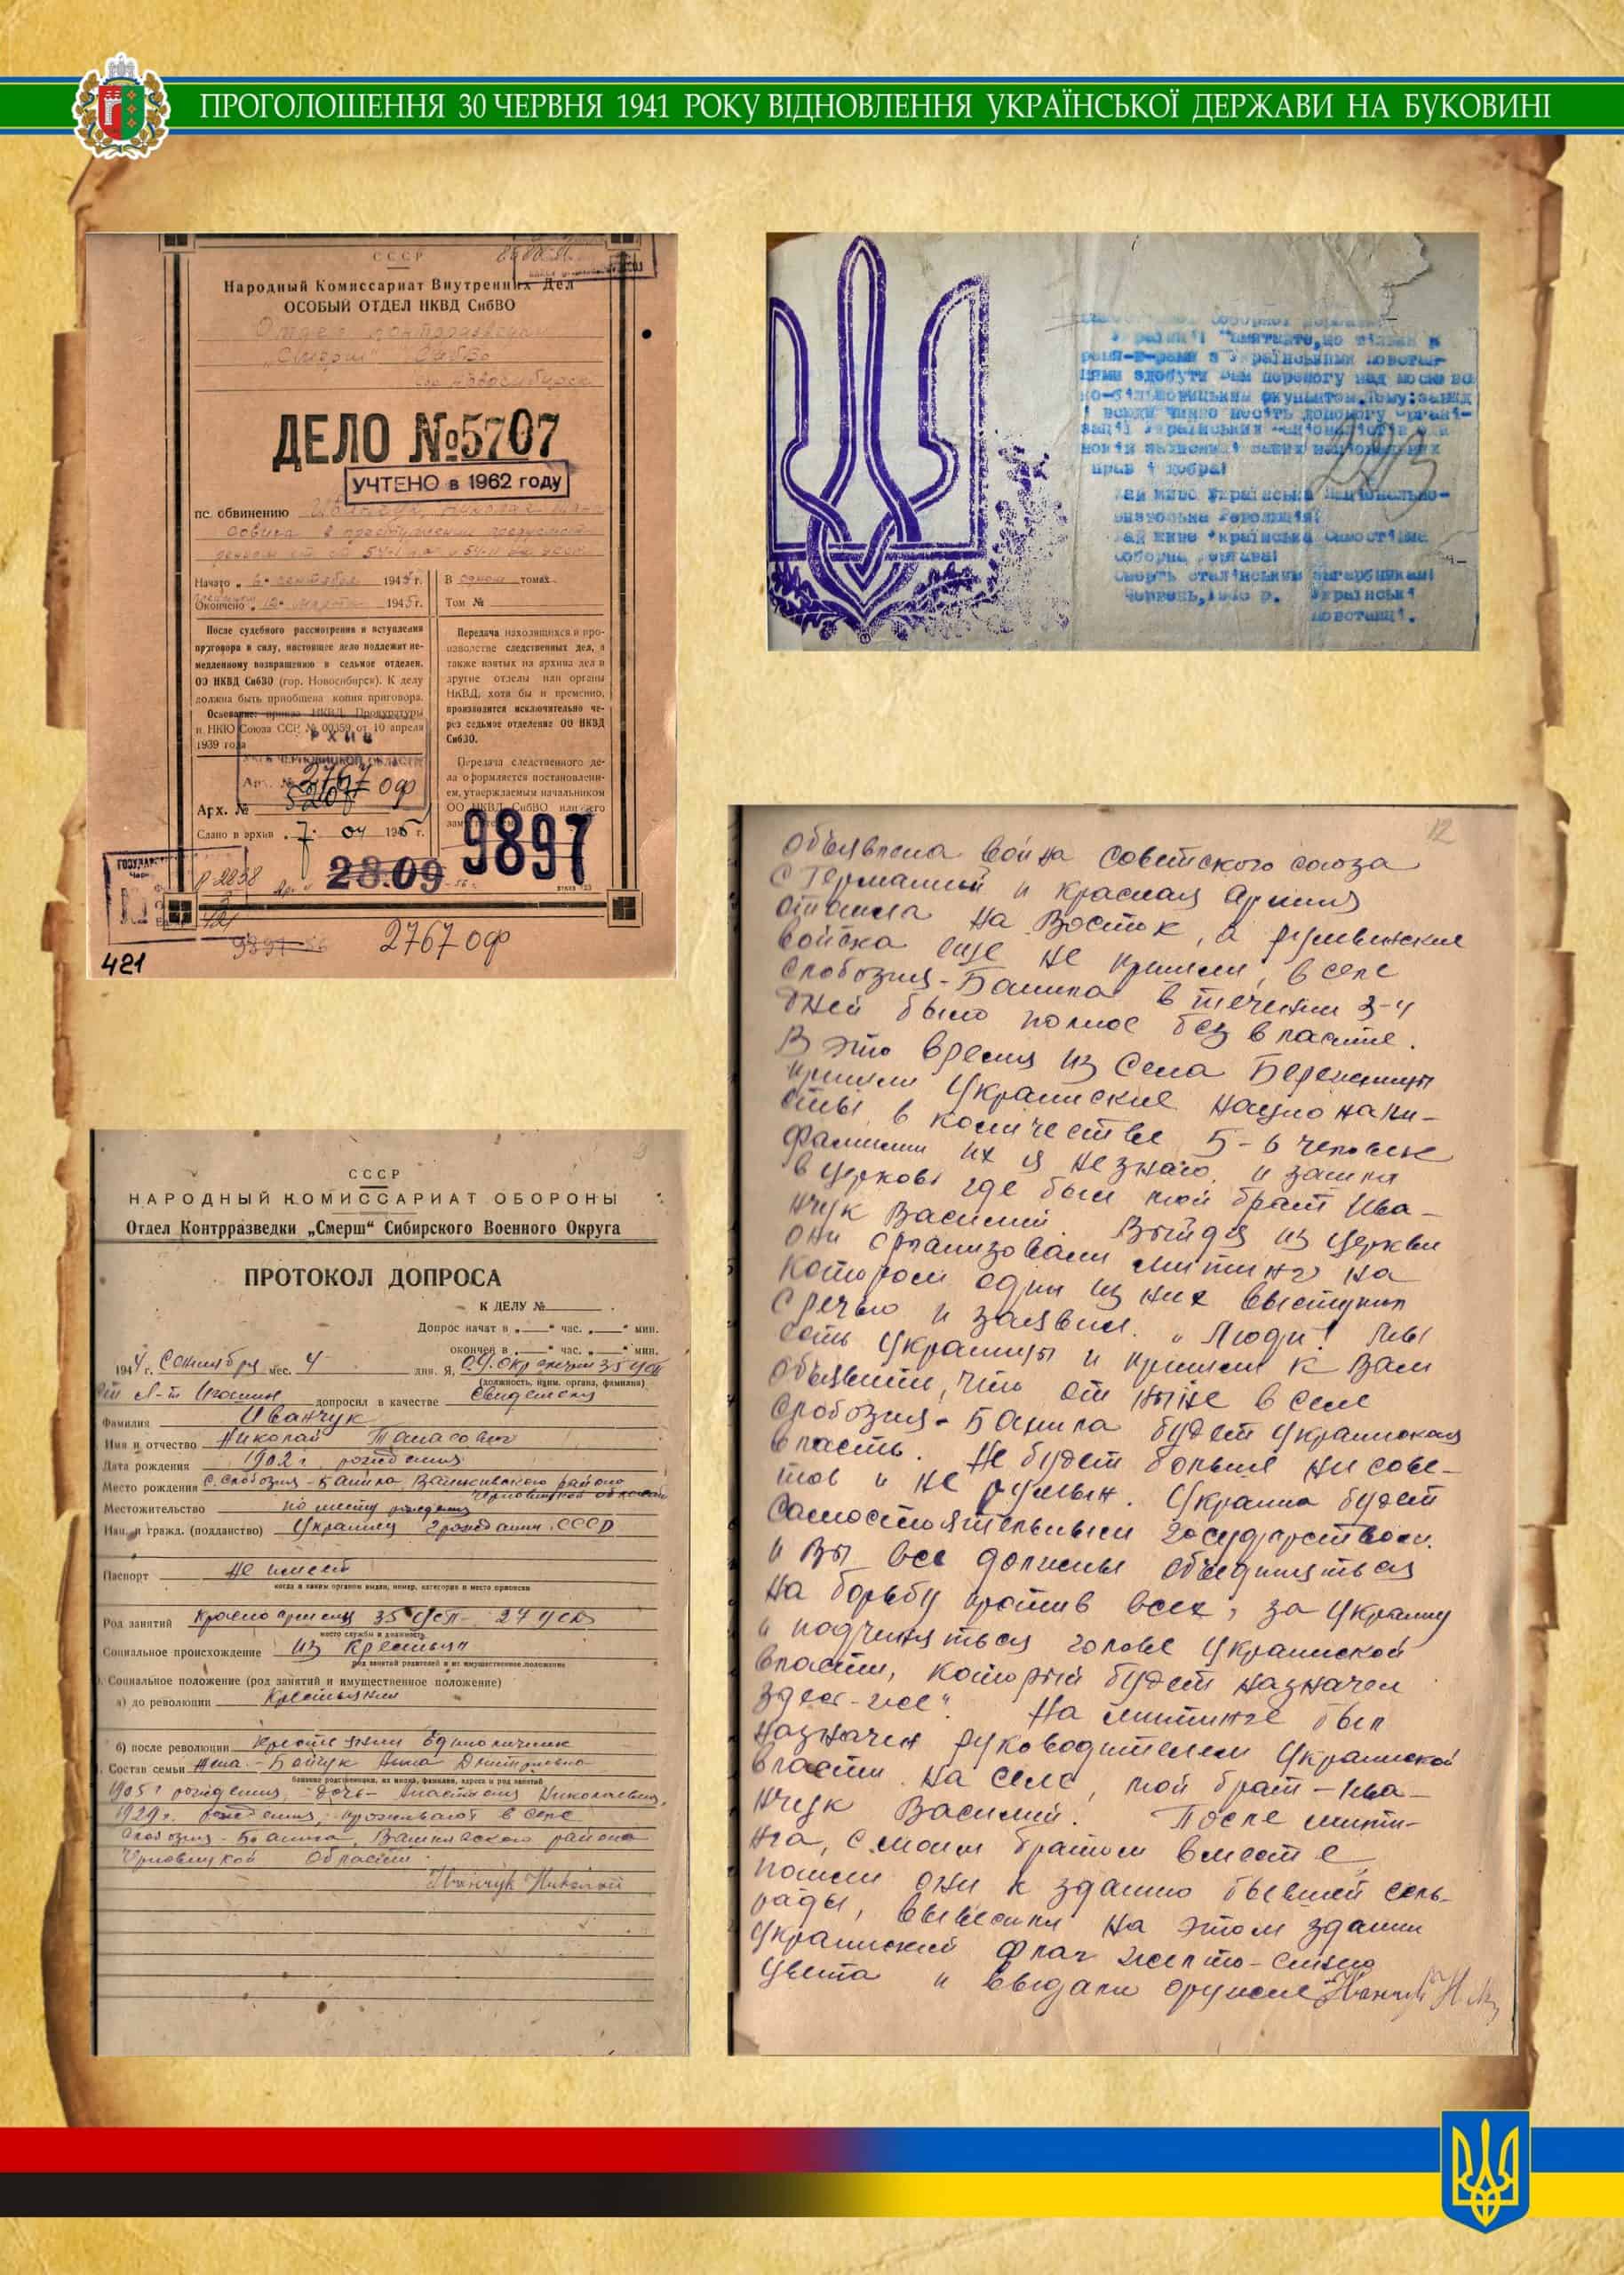 ПРОГОЛОШЕННЯ 30 ЧЕРВНЯ 1941 РОКУ ВІДНОВЛЕННЯ УКРАЇНСЬКОЇ ДЕРЖАВИ НА БУКОВИНІ
СССР
Народный Комиссариат Внутренних Дел
ОСОБЫЙ ОТДЕЛ НКВД СибВО
Отдел контрразведки
„Смерш" СибВО
гор. Новосибирск
ДЕЛО №5707
УЧТЕНО в 1962 году
по обвинению
Начато „6" сентября 1944 г.
Окончено „12" марта 1945 г.
После судебного рассмотрения и вступления
приговора в силу, настоящее дело подлежит не-
медленному возвращению в седьмое отделен.
ОО НКВД СибВО (гор. Новосибирск). К делу
должна быть приобщена копия приговора.
Основание: приказ НКВД, Прокуратуры
и НКЮ Союза ССР № 00359 от 10 апреля
1939 года
Арх. №
Сдано в архив „7" 04 194 г.
В одном томах
Том №
Передача находящихся в про-
изводстве следственных дел, а
также взятых из архива дел в
другие отделы или органы
НКВД, хотя бы и временно,
производится исключительно че-
рез седьмое отделение ОО НКВД
СибВО.
Передача следственного де-
ла оформляется постановлени-
ем, утверждаемым начальником
ОО НКВД СибВО или его
28.09
9897
2767 оф
421
України! Пам'ятайте, що тільки в
рямі-в-рямі з Українськими повстан-
цями здобути Вам перемогу над моско во
і всюди чинно несіть допомогу Органі-
зації Українських Націоналістів
прав і добра!
Хай живе Українська Національно-
Визвольна Революція!
Хай живе Українська Самостійна
Соборна Держава!
Смерть сталінським загарбникам!
Червень, р. Українські
повстанці.
СССР
НАРОДНЫЙ КОМИССАРИАТ ОБОРОНЫ
Отдел Контрразведки „Смерш" Сибирского Военного Округа
ПРОТОКОЛ ДОПРОСА
К ДЕЛУ №
Допрос начат в „ " час. „ " мин.
окончен в „ " час. „ " мин.
1944 г. Сентября мес. 4 дня. Я,
(должность, наим. органа, фамилия)
допросил в качестве свидетеля
Фамилия Иванчук
Имя и отчество Николай Танасович
Дата рождения 1902 г. рождения
Место рождения с. Слобозия-Банила Вашковского района
Черновицкой области
Местожительство по месту рождения
Нац. и гражд. (подданство) Украинец гражданин СССР
Паспорт не имеет
когда и каким органом выдан, номер, категория и место прописки
Род занятий красноармеец
место службы и должность
Социальное происхождение из крестьян
род занятий родителей и их имущественное положение
Социальное положение (род занятий и имущественное положение)
а) до революции крестьянин
б) после революции крестьянин единоличник
Состав семьи жена - Бойчук Анна Дмитриевна
близкие родственники, их имена, фамилии, адреса и род занятий
1905 г рождения, дочь - Анастасия Николаевна,
1929 г. рождения, проживают в селе
Слобозия-Банила, Вашковского района
Черновицкой Области.
Іванчук Николай
12
Объявлена война Советского союза
с Германией и Красная Армия
отошла на Восток, а румынские
войска еще не пришли, в селе
Слобозия-Банила в течении 3-4
дней было полное без властие.
В это время из села Бережницы
пришли Украинские национали-
сты, в количестве 5-6 человек
фамилии их я не знаю, и зашли
в церковь где был мой брат Ива-
нчук Василий. Выйдя из церкви
они организовали митинг на
котором один из них выступил
с речью и заявил. „Люди! Мы
есть Украинцы и пришли к Вам
объявить, что от ныне в селе
Слобозия-Банила будет Украинская
власть. Не будет больше ни сове-
тов и не румын. Украина будет
самостоятельным государством.
и Вы все должны объединяться
на борьбу против всех, за Украину
и подчиняться голове Украинской
власти, который будет назначен
здесь-же". На митинге был
назначен руководителем Украинской
власти на селе, мой брат - Ива-
нчук Василий. После мити-
нга, с моим братом вместе
пошли они к зданию бывшей сель-
рады, вывесили на этом здании
Украинский флаг желто-синего
цвета и выдали оружие